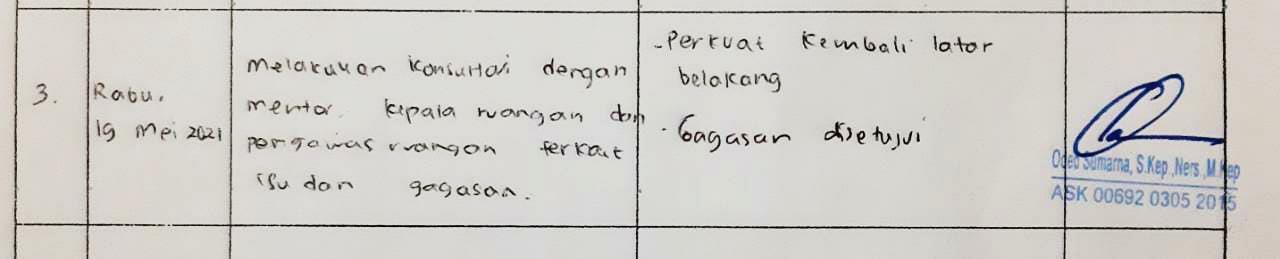 3.
Rabu,
19 Mei 2021
Melakukan konsultasi dengan
mentor, kepala ruangan dan
pengawas ruangan terkait
isu dan gagasan.
- Perkuat kembali latar
belakang
- Gagasan disetujui
Oded Sumarna, S.Kep.,Ners.,M.Kep
ASK 00692 0305 2015